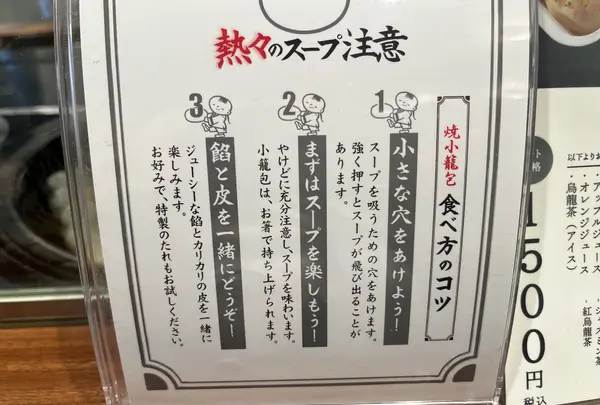 熱々のスープ注意
焼小龍包 食べ方のコツ
1
小さな穴をあけよう!
スープを吸うための穴をあけます。
強く押すとスープが飛び出ることが
あります。
2
まずはスープを楽しもう!
やけどに充分注意し、スープを味わいます。
小籠包は、お箸で持ち上げられます。
3
餡と皮を一緒にどうぞ!
ジューシーな餡とカリカリの皮を一緒に
楽しみます。
お好みで、特製のたれもお試しください。
以下より
・アップルジュース
・オレンジジュース
・烏龍茶(アイス)
・ジャスミン茶
・紅烏龍茶
ト
格
1500円
税込